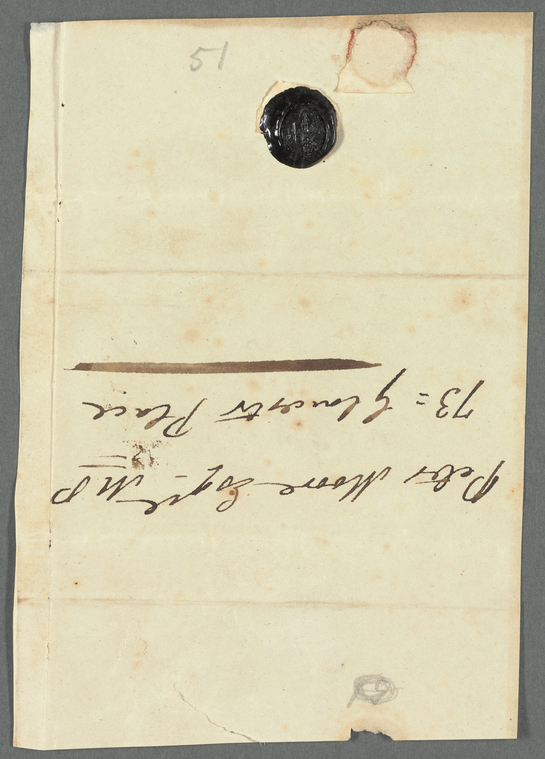 51
Peter Moore Esqre MP
73 = Glocester Place